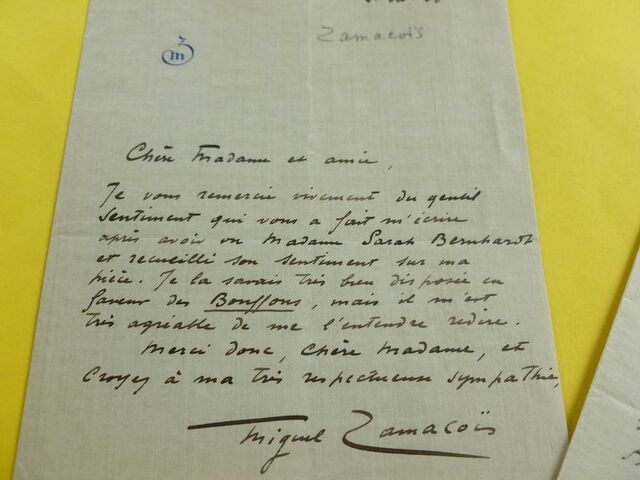 Zamacoïs
Chère Madame et amie,
Je vous remercie vivement du gentil
sentiment qui vous a fait m'écrire
après avoir vu Madame Sarah Bernhardt
et recueilli son sentiment sur ma
pièce. Je la savais très bien disposée en
faveur des Bouffons, mais il m'est
très agréable de me l'entendre redire.
Merci donc, chère Madame, et
croyez à ma très respectueuse sympathie,
Miguel Zamacoïs